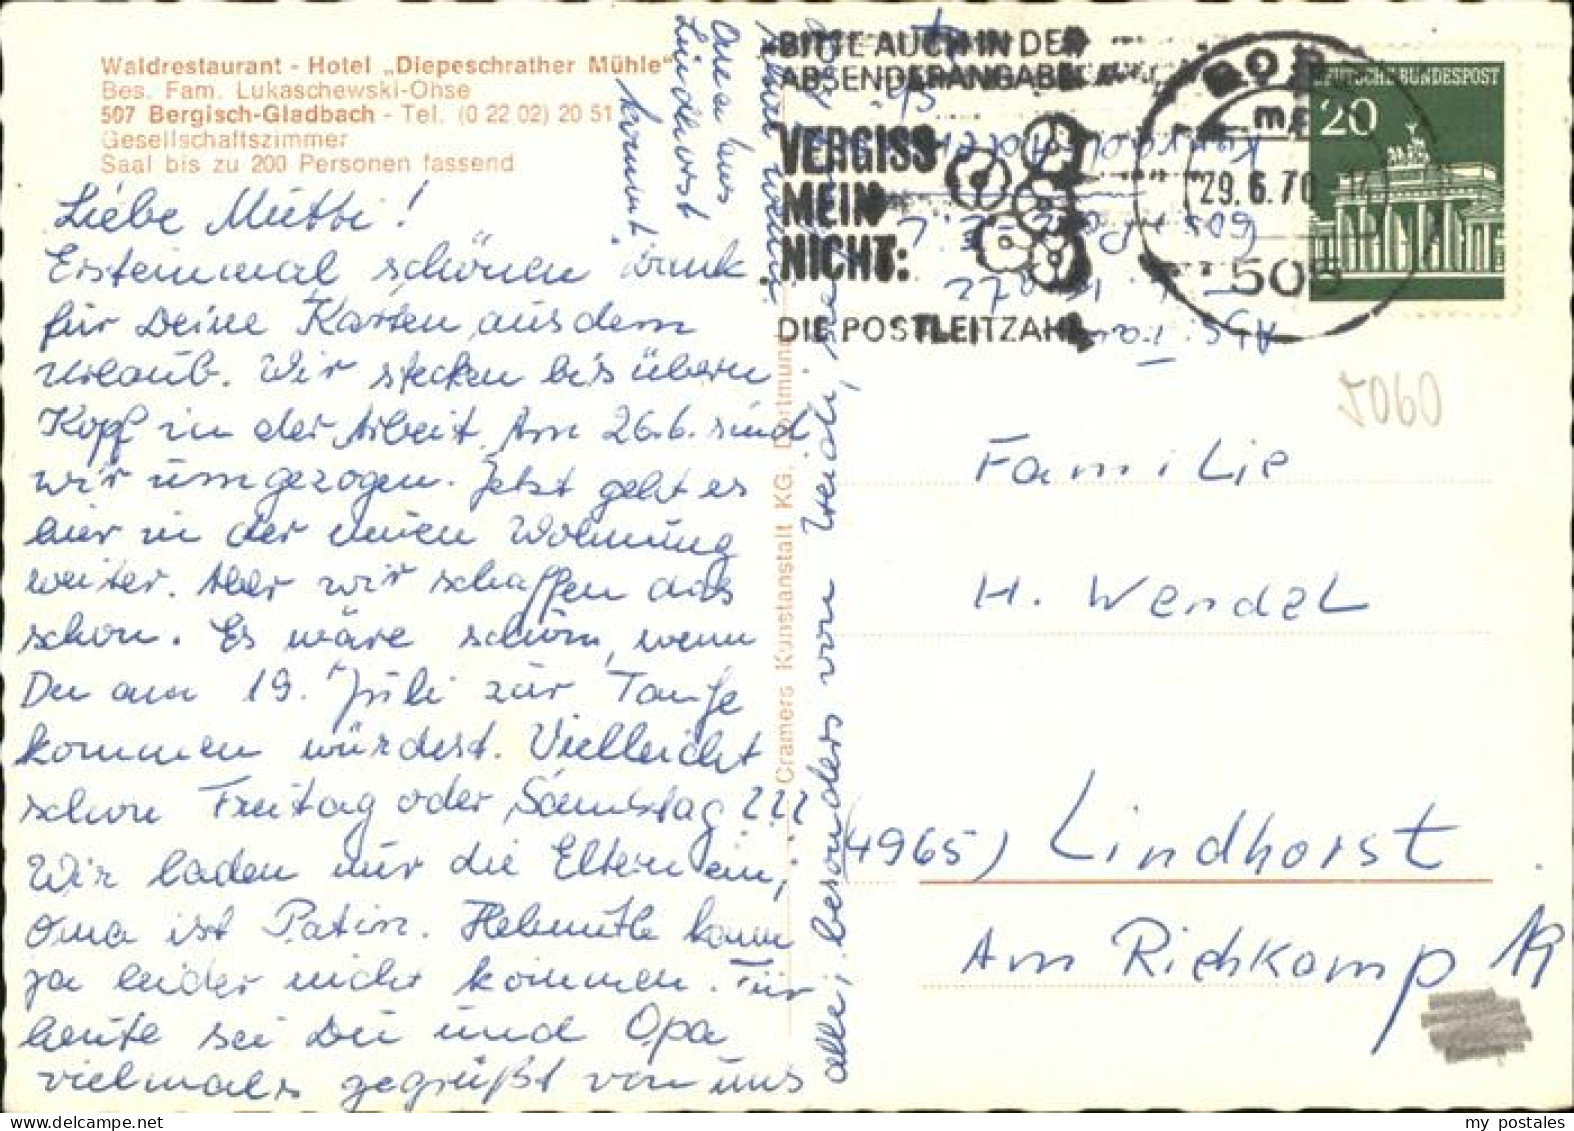 Waldrestaurant - Hotel „Diepeschrather Mühle"
Bes. Fam. Lukaschewski-Ohse
507 Bergisch-Gladbach - Tel. (0 22 02) 20 51
Gesellschaftszimmer
Saal bis zu 200 Personen fassend
Liebe Mutti!
Ersteinmal schönen Dank
für Deine Karten aus dem
Urlaub. Wir stecken bis übern
Kopf in der Arbeit. Am 26.6. sind
wir umgezogen. Jetzt geht es
hier in der neuen Wohnung
weiter. Aber wir schaffen das
schon. Es wäre schön, wenn
Du am 19. Juli zur Taufe
kommen würdest. Vielleicht
schon Freitag oder Samstag???
Wir laden nur die Eltern ein,
Oma ist Patin. Helmuth kann
ja leider nicht kommen. Für
heute sei Du und Opa
vielmals gegrüßt von uns
allen, besonders von Heidi,
aus
Lindhorst
kommt.
Cramers Kunstanstalt KG, Dortmund
BITTE AUCH IN DER
ABSENDERANGABE
VERGISS
MEIN
NICHT:
DIE POSTLEITZAHL
29.6.70
505
DEUTSCHE BUNDESPOST
20
Abs.
5060
Familie
H. Wendel
(4965) Lindhorst
Am Richkamp 19
my postales